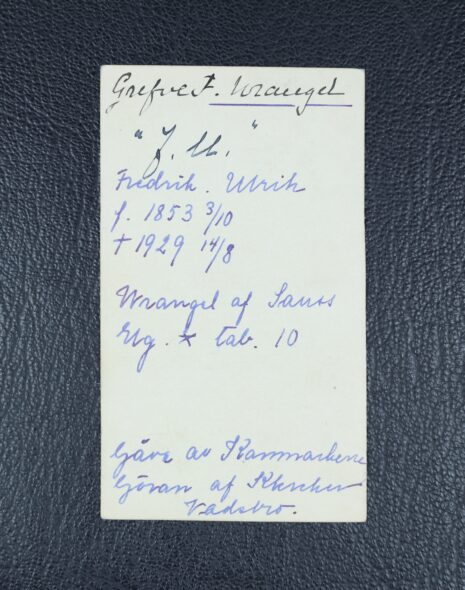 Grefve F. Wrangel
"F. U."
Fredrik. Ulrik
f. 1853 3/10
† 1929 14/8
Wrangel af Sauss
Elg. * tab. 10
Gåva av Kammarherre
Göran af Klercker
Vadsbro.